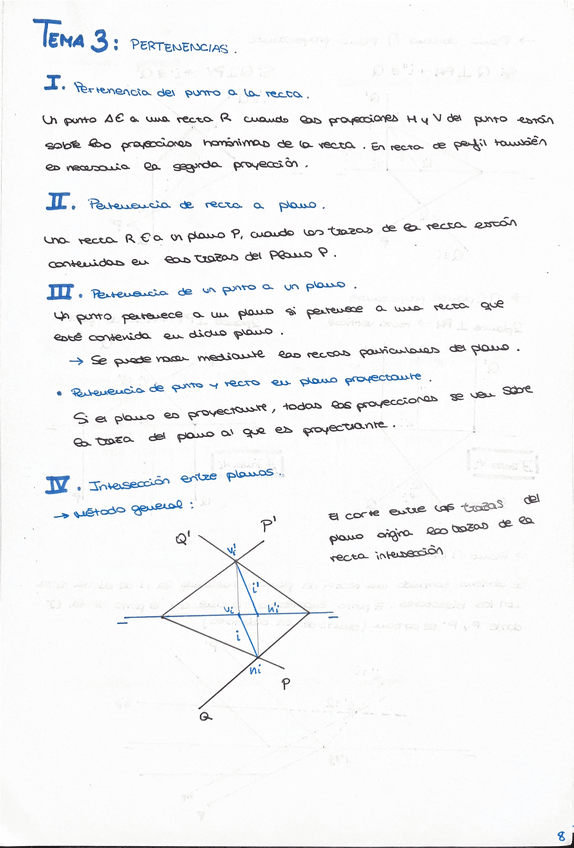 TEMA 3: PERTENENCIAS.
I. Pertenencia del punto a la recta.
Un punto A∈ a una recta R cuando las proyecciones H y V del punto están
sobre las proyecciones homónimas de la recta. En recta de perfil también
es necesaria la segunda proyección.
II. Pertenencia de recta a plano.
Una recta R ∈ a un plano P, cuando las trazas de la recta están
contenidas en las trazas del Plano P.
III. Pertenencia de un punto a un plano.
Un punto pertenece a un plano si pertenece a una recta que
esté contenida en dicho plano.
→ Se puede hacer mediante las rectas particulares del plano.
• Pertenencia de punto y recta en plano proyectante.
Si el plano es proyectante, todas las proyecciones se ven sobre
la traza del plano al que es proyectante.
IV. Intersección entre planos.
→ Método general:
El corte entre las trazas del
plano origina las trazas de la
recta intersección
Q'
P'
Vi'
i'
Vi
h'i
i
hi
P
Q
8